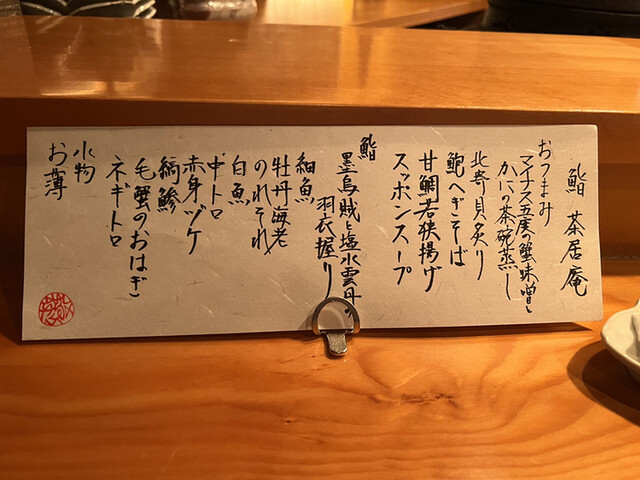 鮨 茶居庵
おつまみ
マイナス五度の蟹味噌と
かにの茶碗蒸し
北寄貝炙り
鮑へぎそば
甘鯛若狭揚げ
スッポンスープ
鮨
墨烏賊と塩水雲丹の
羽衣握り
細魚
牡丹海老
のれそれ
白魚
中トロ
赤身ヅケ
縞鯵
毛蟹のおはぎ
ネギトロ
水物
お薄